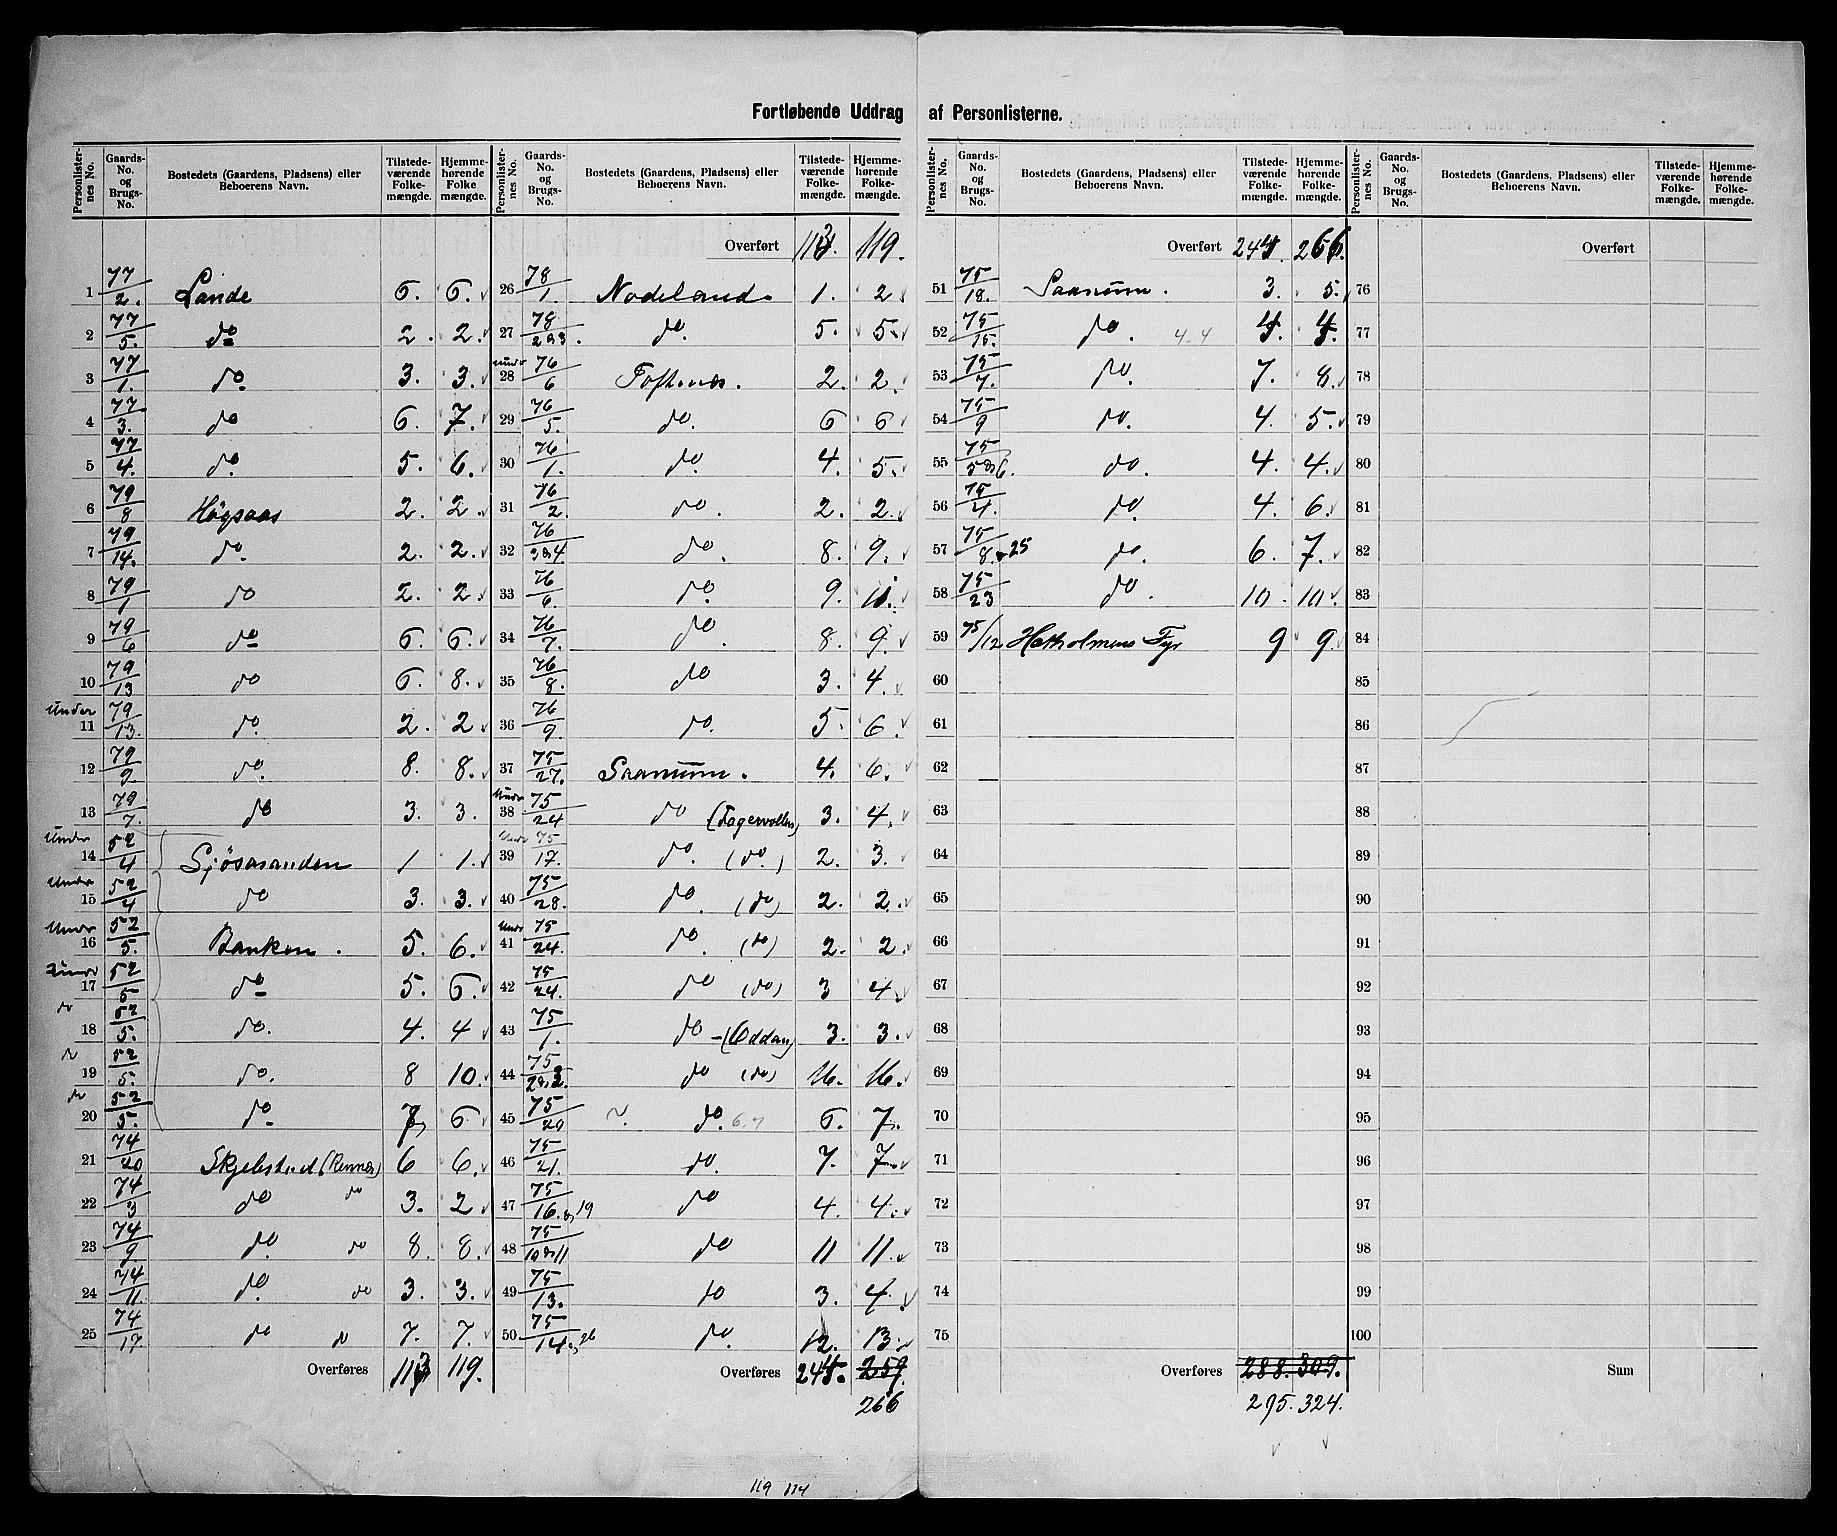 Fortløbende Uddrag af Personlisterne.
Personlisternes No. | Gaards-No. og Brugs-No. | Bostedets (Gaardens, Pladsens) eller Beboerens Navn. | Tilstedeværende Folkemængde. | Hjemmehørende Folkemængde.
1 77/2. Lande 6. 6.
2 77/5. do 2. 2.
3 77/1. do. 3. 3.
4 77/3. do 6. 7.
5 77/4. do. 5. 6.
6 79/8 Høgsaas 2. 2.
7 79/14. do. 2. 2.
8 79/1 do 2. 2.
9 79/6 do 6. 6.
10 79/13 do 6. 8.
Under 11 79/13. do. 2. 2
12 79/9. do. 8. 8.
13 79/7. do 3. 3.
Under 14 52/4 Sjøsanden 1 1.
Under 15 52/4 do 3. 3.
Under 16 52/5. Banken. 5. 6.
Under 17 52/5 do 5. 6.
do 18 52/5. do. 4. 4
19 52/5. do. 8 10.
do 20 52/5. do. 7 6
21 74/20 Skjebstad (Rennes) 6 6.
22 74/3 do do 3. 2
23 74/9. do. do 8. 8.
24 74/11. do. do 3. 3.
25 74/17. do do 7. 7.
Overføres 113 119.
Personlisternes No. | Gaards-No. og Brugs-No. | Bostedets (Gaardens, Pladsens) eller Beboerens Navn. | Tilstedeværende Folkemængde. | Hjemmehørende Folkemængde.
Overført 113. 119.
26 78/1. Nodeland. 1. 2
27 78/2&3. do. 5. 5.
Under 28 76/6 Toftenes. 2. 2.
29 76/5. do. 6 6
30 76/1. do. 4. 5.
31 76/2. do. 2. 2.
32 76/3&4. do. 8. 9.
33 76/6. do. 9. 11.
34 76/7. do. 8. 9.
35 76/8. do 3. 4.
36 76/9. do. 5. 6.
37 75/27. Saanum. 4. 6.
Under 38 75/24 do (Fagervollen) 3. 4.
Under 39 75/17. do. (do.) 2. 3.
40 75/28. do. (do) 2. 2.
Under 41 75/24. do. (do) 2. 2
42 75/24. do (do) 3 4.
43 75/1. do - (Oddan) 3. 3.
44 75/2&3. do (do) 16. 16.
45 75/20 do. 6.7 6. 7.
46 75/21. do. 7. 7.
47 75/16. & 19 do 4. 4.
48 75/10&11 do 11 11.
49 75/13. do 3. 4.
50 75/14. & 26 do. 12. 13.
Overføres 244. 259.
266
Personlisternes No. | Gaards-No. og Brugs-No. | Bostedets (Gaardens, Pladsens) eller Beboerens Navn. | Tilstedeværende Folkemængde. | Hjemmehørende Folkemængde.
Overført 244. 266.
51 75/18. Saanum. 3. 5.
52 75/15. do. 4.4 4. 4.
53 75/7. do. 7. 8.
54 75/9 do. 4. 5.
55 75/5&6. do. 4. 4.
56 75/4. do. 4. 6.
57 75/8. & 25 do. 6. 7.
58 75/23 do. 10. 10.
59 75/12 Hatholmens Fyr 9 9.
60
61
62
63
64
65
66
67
68
69
70
71
72
73
74
75
Overføres 288. 309.
295. 324.
Personlisternes No. | Gaards-No. og Brugs-No. | Bostedets (Gaardens, Pladsens) eller Beboerens Navn. | Tilstedeværende Folkemængde. | Hjemmehørende Folkemængde.
Overført
76
77
78
79
80
81
82
83
84
85
86
87
88
89
90
91
92
93
94
95
96
97
98
99
100
Sum
119 114